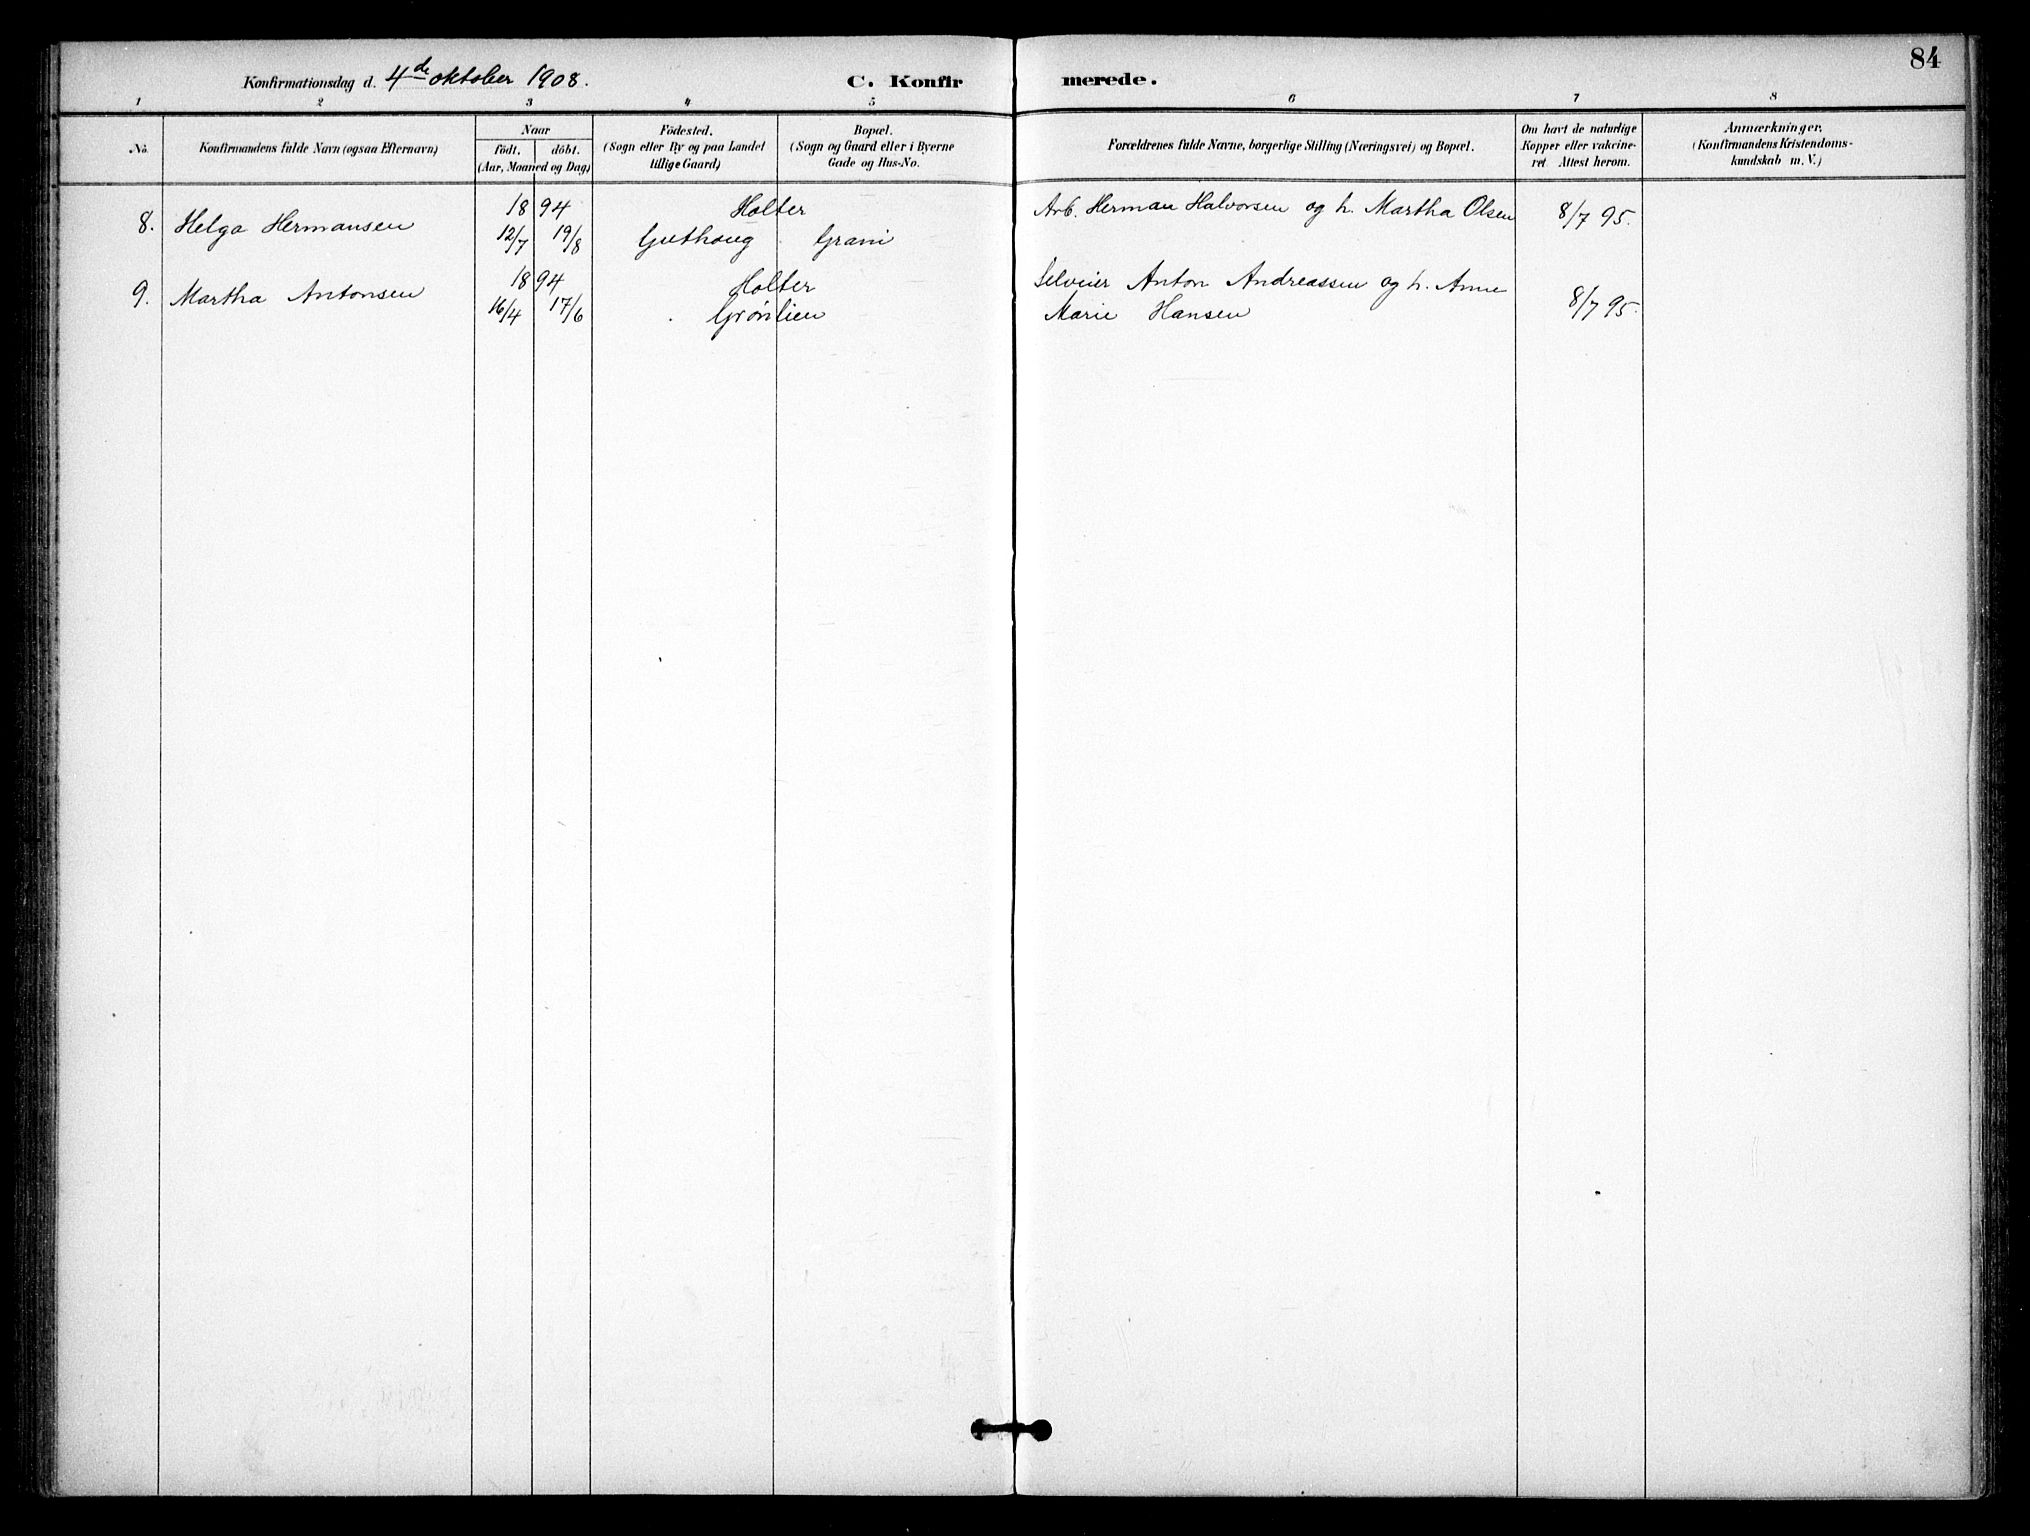 84
Konfirmationsdag d. 4de oktober 1908. C. Konfirmerede.
1 2 3 4 5 6 7 8
No. Konfirmandens fulde Navn (ogsaa Efternavn)
Naar
født. døbt.
(Aar, Maaned og Dag)
Fødested.
(Sogn eller By og paa Landet
tillige Gaard)
Bopæl.
(Sogn og Gaard eller i Byerne
Gade og Hus-No.
Forældrenes fulde Navne, borgerlige Stilling (Næringsvei) og Bopæl.
Om havt de naturlige
Kopper eller vakcine-
ret Attest herom.
Anmærkninger.
(Konfirmandens Kristendoms-
kundskab m. V.)
1894 Holter Arb. Herman Halvorsen og h. Martha Olsen 8/7 95.
8. Helga Hermansen 12/7 19/8 Guthaug Grani
1894 Holter Selveier Anton Andreassen og h. Anne
9. Martha Antonsen 16/4 17/6 Grønlien Marie Hansen 8/7 95.